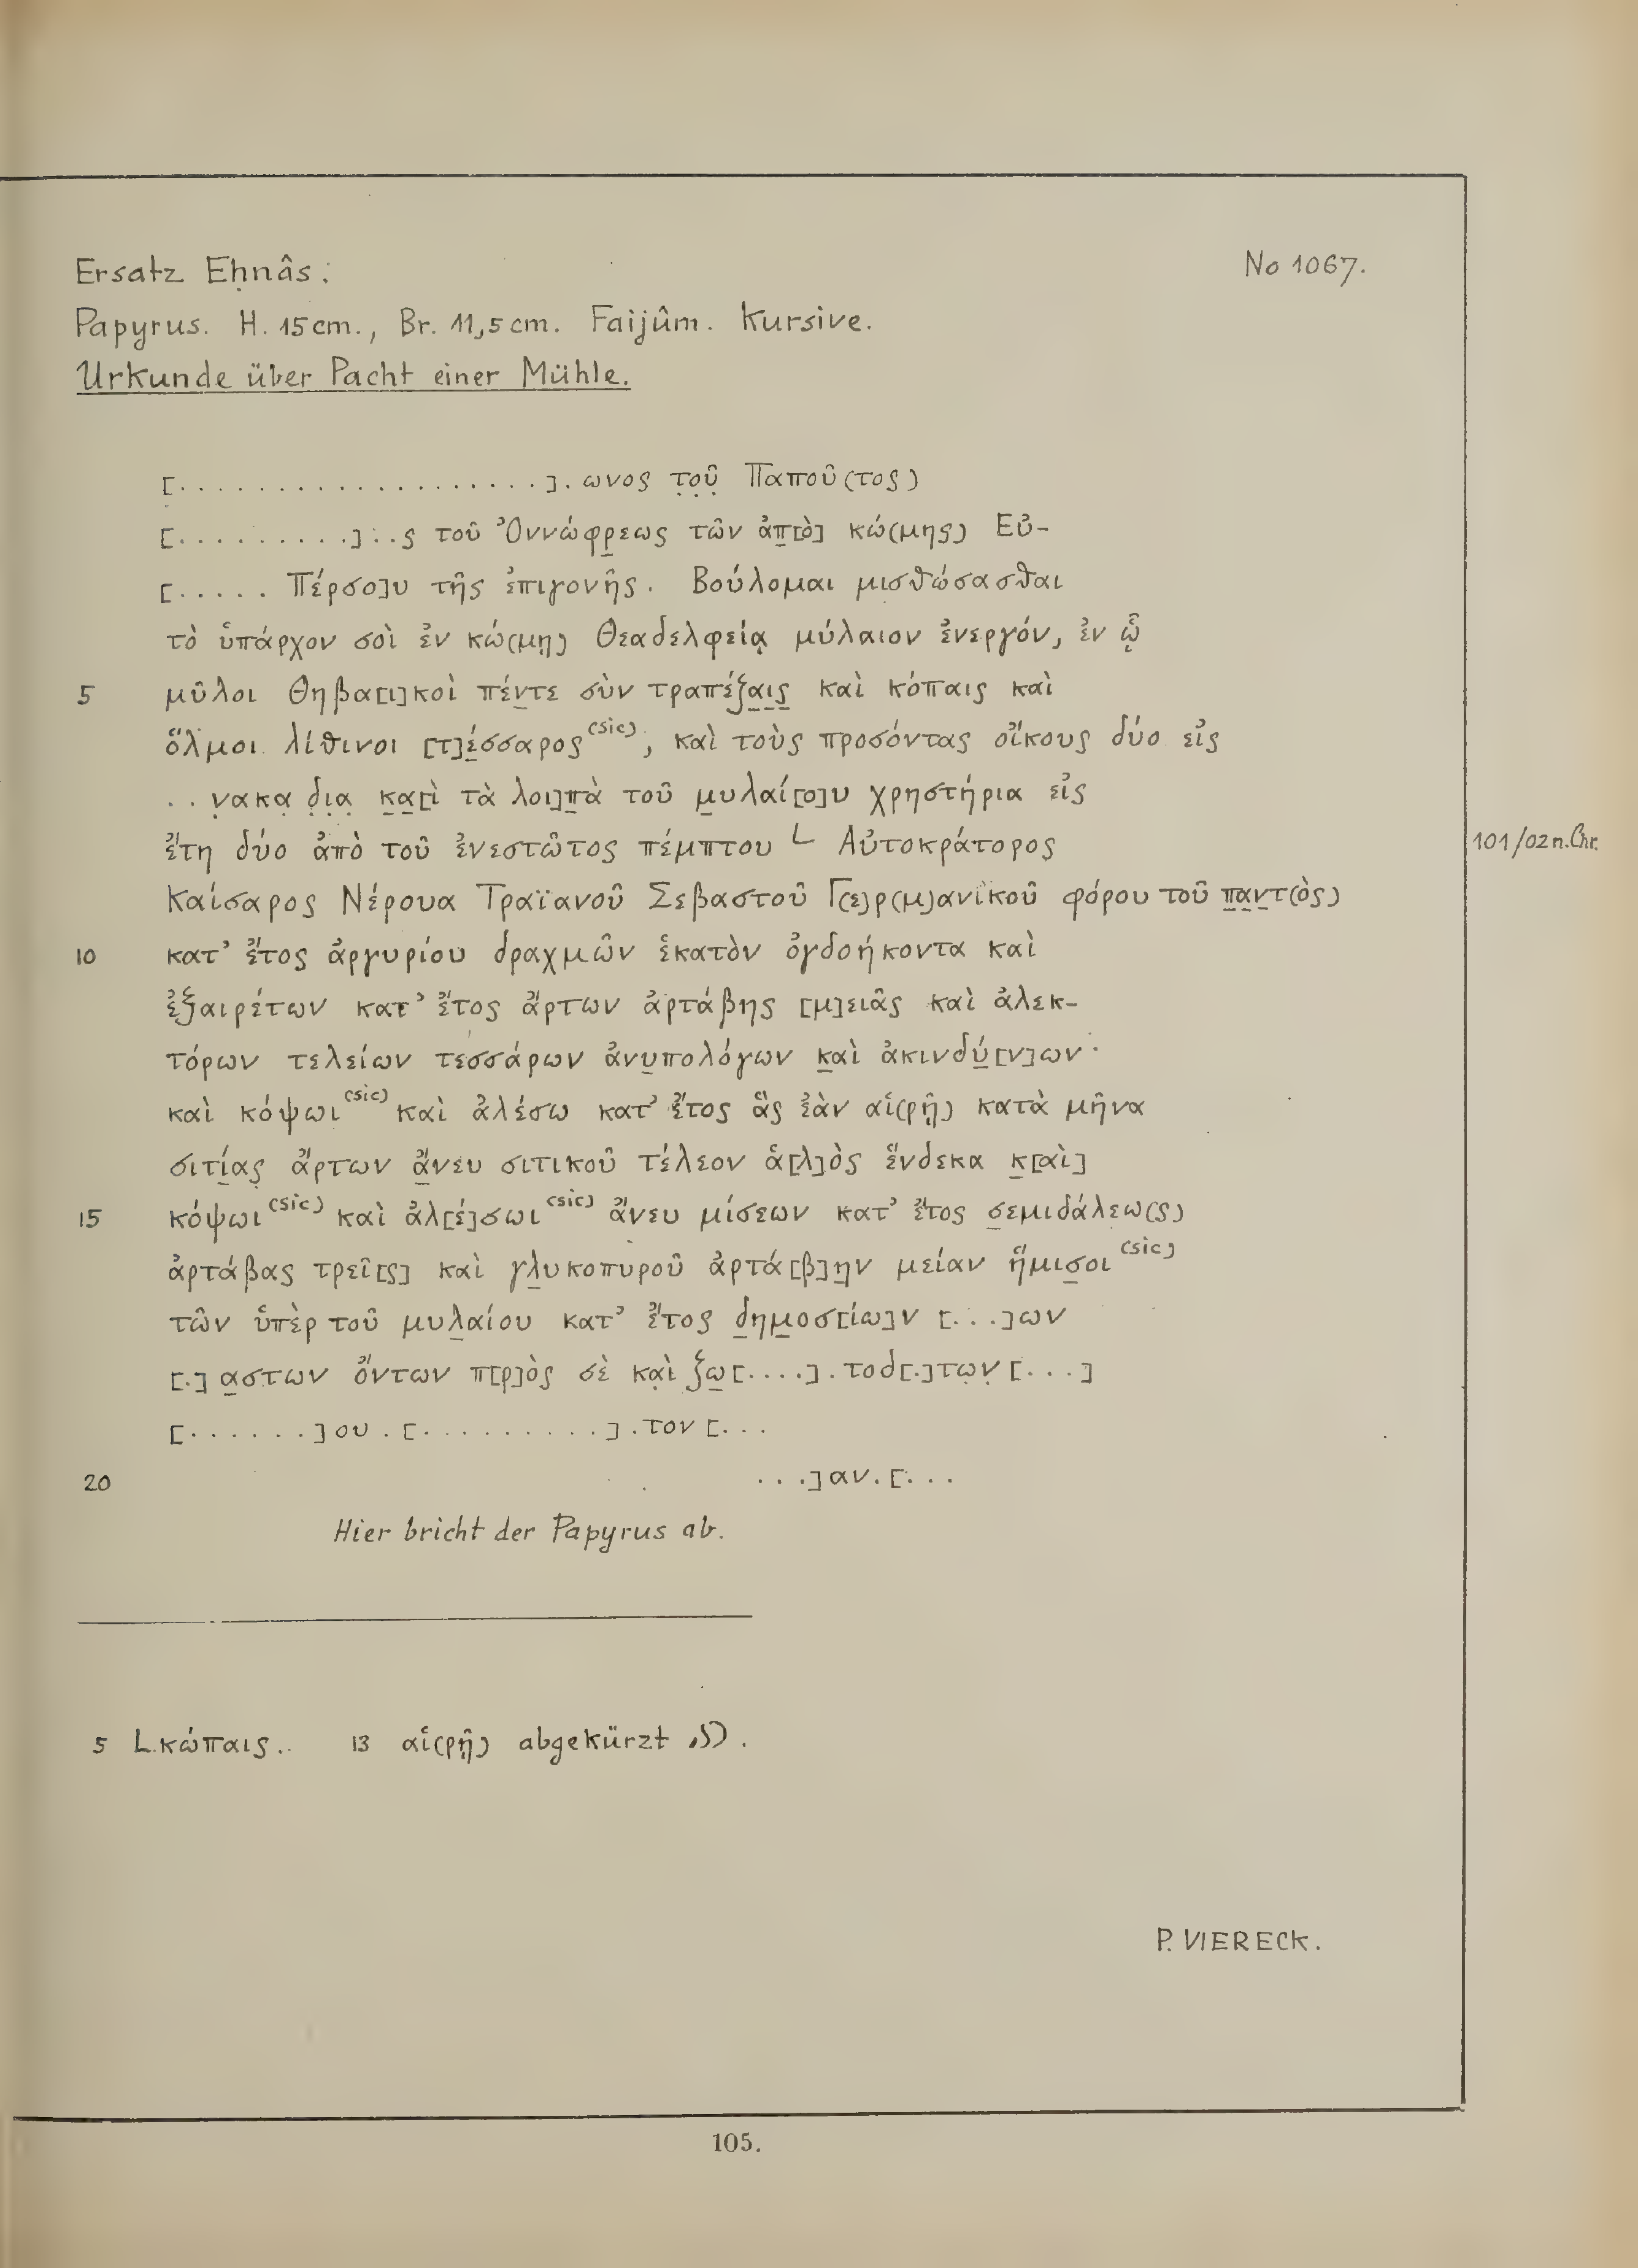 Ersatz Eḥnâs: No 1067.
Papyrus. H. 15 cm., Br. 11,5 cm. Faijûm. Kursive.
Urkunde über Pacht einer Mühle.
[. . . . . . . . . . . . . . . . . . .]. ωνος τ̣ο̣ῦ̣ Παποῦ(τος)
[. . . . . . . . .] . . ς τοῦ Ὀννώφρ̲εως τῶν ἀπ̲[ὸ] κώ(μης) Εὐ-
[. . . . . Πέρσο]υ τῆς ἐπιγονῆς. Βούλομαι μισθώσασθαι
τὸ ὑπάρχον σοὶ ἐν κώ(μῃ) Θεαδελφείᾳ μύλαιον ἐνεργόν, ἐν ᾧ
5 μῦλοι Θηβα[ι]κοὶ πέν̲τε σὺν τραπέζα̲ι̲ς̲ καὶ κόπαις καὶ
ὅλμοι λίθινοι [τ]έ̲σσαρος (sic), καὶ τοὺς προσόντας οἴκους δύο εἰς
. . ν̣ακα̣ δ̣ι̣α̣ κ̲α̲[ὶ τὰ λοι]π̲ὰ τοῦ μ̲υλαί[ο]υ χρηστήρια εἰς
ἔτη δύο ἀπὸ τοῦ ἐνεστῶτος πέμπτου └ Αὐτοκράτορος 101/02 n. Chr.
Καίσαρος Νέρουα Τραϊανοῦ Σεβαστοῦ Γ(ε)ρ(μ)ανικοῦ φόρου τοῦ π̲α̲ν̲τ(ὸς)
10 κατ᾽ ἔτος ἀργυρίου δραχμῶν ἑκατὸν ὀγδοήκοντα καὶ
ἐξαιρέτων κατ᾽ ἔτος ἄρτων ἀρτάβης [μ]ειᾶς καὶ ἀλεκ-
τόρων τελείων τεσσάρων ἀνυ̲πολόγων κ̲αὶ ἀκινδύ̲[ν]ων·
καὶ κόψωι (sic) καὶ ἀλέσω κατ᾽ ἔτος ἃς ἐὰν αἱ(ρῇ) κατὰ μῆνα
σιτί̲ας̣ ἄρτων ἄ̲νευ σιτικοῦ τέλεον ἁ[λ]ὸς ἕνδεκα κ̲[αὶ]
15 κόψωι (sic) καὶ ἀλ[έ]σωι (sic) ἄνευ μίσεων κατ᾽ ἔτος σ̲εμιδάλεω(ς)
ἀρτάβας τρεῖ[ς] καὶ γλ̲υκοπυροῦ ἀρτά[β]η̲ν μείαν ἥμισ̲οι (sic)
τῶν ὑπὲρ τοῦ μυλ̲αίου κατ᾽ ἔτος δ̲ημ̲οσ[ίω]ν [. . .]ων
[.] α̲στων ὄντων π[ρ]ὸς σὲ κα̣ὶ ζω̲[. . . .]. τοδ[.]τω̣ν̣ [. . .]
[. . . . . . .]ου . [. . . . . . . . . .] . τον [. . .
20 . . .]αν. [. . .
Hier bricht der Papyrus ab.
5 L. κώπαις. 13 αἱ(ρῇ) abgekürzt
P. VIERECK.
105.